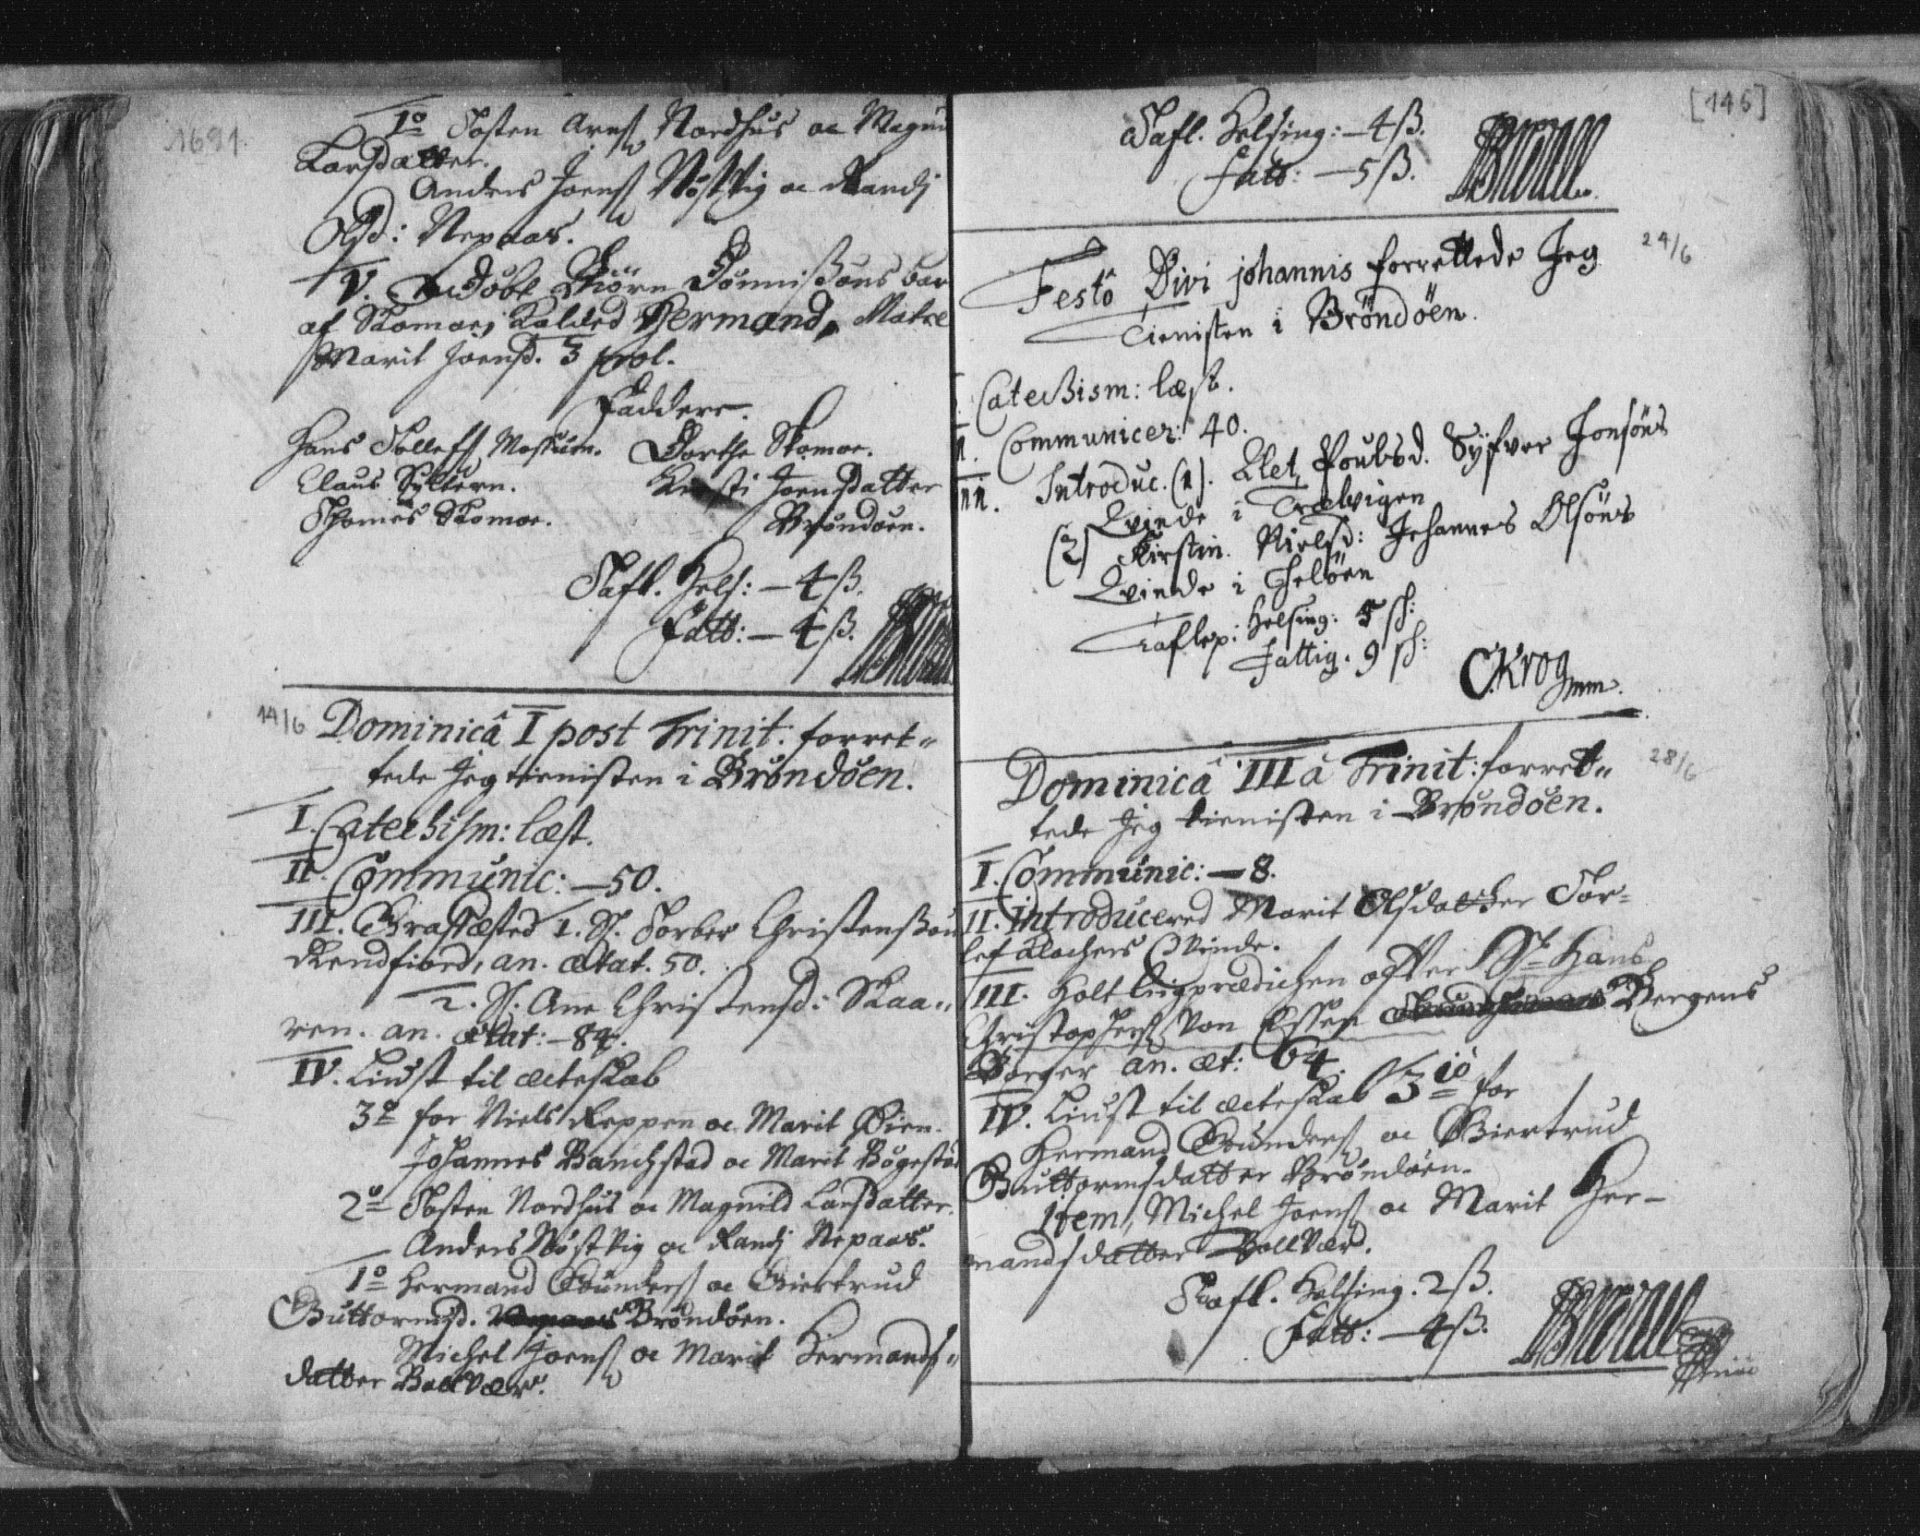 1691.
1o Tosten Arns Nordhus oc Magni
Larsdatter.
Anders Joens Nøstvig oc Randj
Olsd: Nepaas.
V. Døbt Biörn Tönnissøns bar
af Skomoe, Kalded Hermand, Matre
Marit Joensd. 3 prol.
Faddere.
Hans Tollefs Mossum. Dorthe Skomoe.
Claus Syltern. Kirsti Joensdatter
Thomes Skomoe. Brøndøen.
Tafl. Hels: – 4 ß.
Fatt: – 4 ß.
14/6 Dominicâ I post Trinit: forret-
tede Jeg tienisten i Brøndøen.
I. Catechism: læst.
II. Communic: – 50.
III. Graffæsted 1. S. Torber Christenssøn
Rendfiord, an. ætat. 50.
2. S. Ane Christensd: Skaa-
ren. an. ætat: – 84.
IV. Liust til ecteskab
3o for Niels Reppen oc Marit Øien.
Johannes Banchstad oc Marit Bøgestad
2o Tosten Nordhus oc Magnild Larsdatter.
Anders Nøstvig oc Randj Nepaas.
1o Hermand Gunders oc Giertrud
Guttormsd. Brøndøen.
Michel Joens oc Marit Hermands-
datter Bollvær.
[145]
Tafl. Helsing: – 4 ß.
Fatt: – 5 ß.
Festo Divi johannis forrettede Jeg 24/6
Tienisten i Bröndöen.
Catechism: læst.
II. Communicer: 40.
III. Introduc. (1). Elet Poulsd. Syfver Jonsöns
Qvinde i Trælvigen
(2) Kirstin. Nielsd: Johannes Olsöns
Qvinde i Theløen
Taflep: Helsing: 5 sh:
Fattig. 9 sh:
C. Krog mm.
Dominicâ III â Trinit: forret- 28/6
tede Jeg tienisten i Brøndøen.
I. Communic: – 8.
II. Introducered Marit Olsdatter Tor-
lef Klochers Qvinde.
III. Holt Liigprædichen ofver S. Hans
Christophers von Essen Bergens
Borger an. æt: 64.
IV. Liust til ecteskab 3io for
Hermand Gunders oc Giertrud
Guttormsdatter Brøndøen.
item, Michel Joens oc Marit Her-
mandsdatter Bollvær.
Tafl. Helsing. 2 ß.
Fatt: – 4 ß.